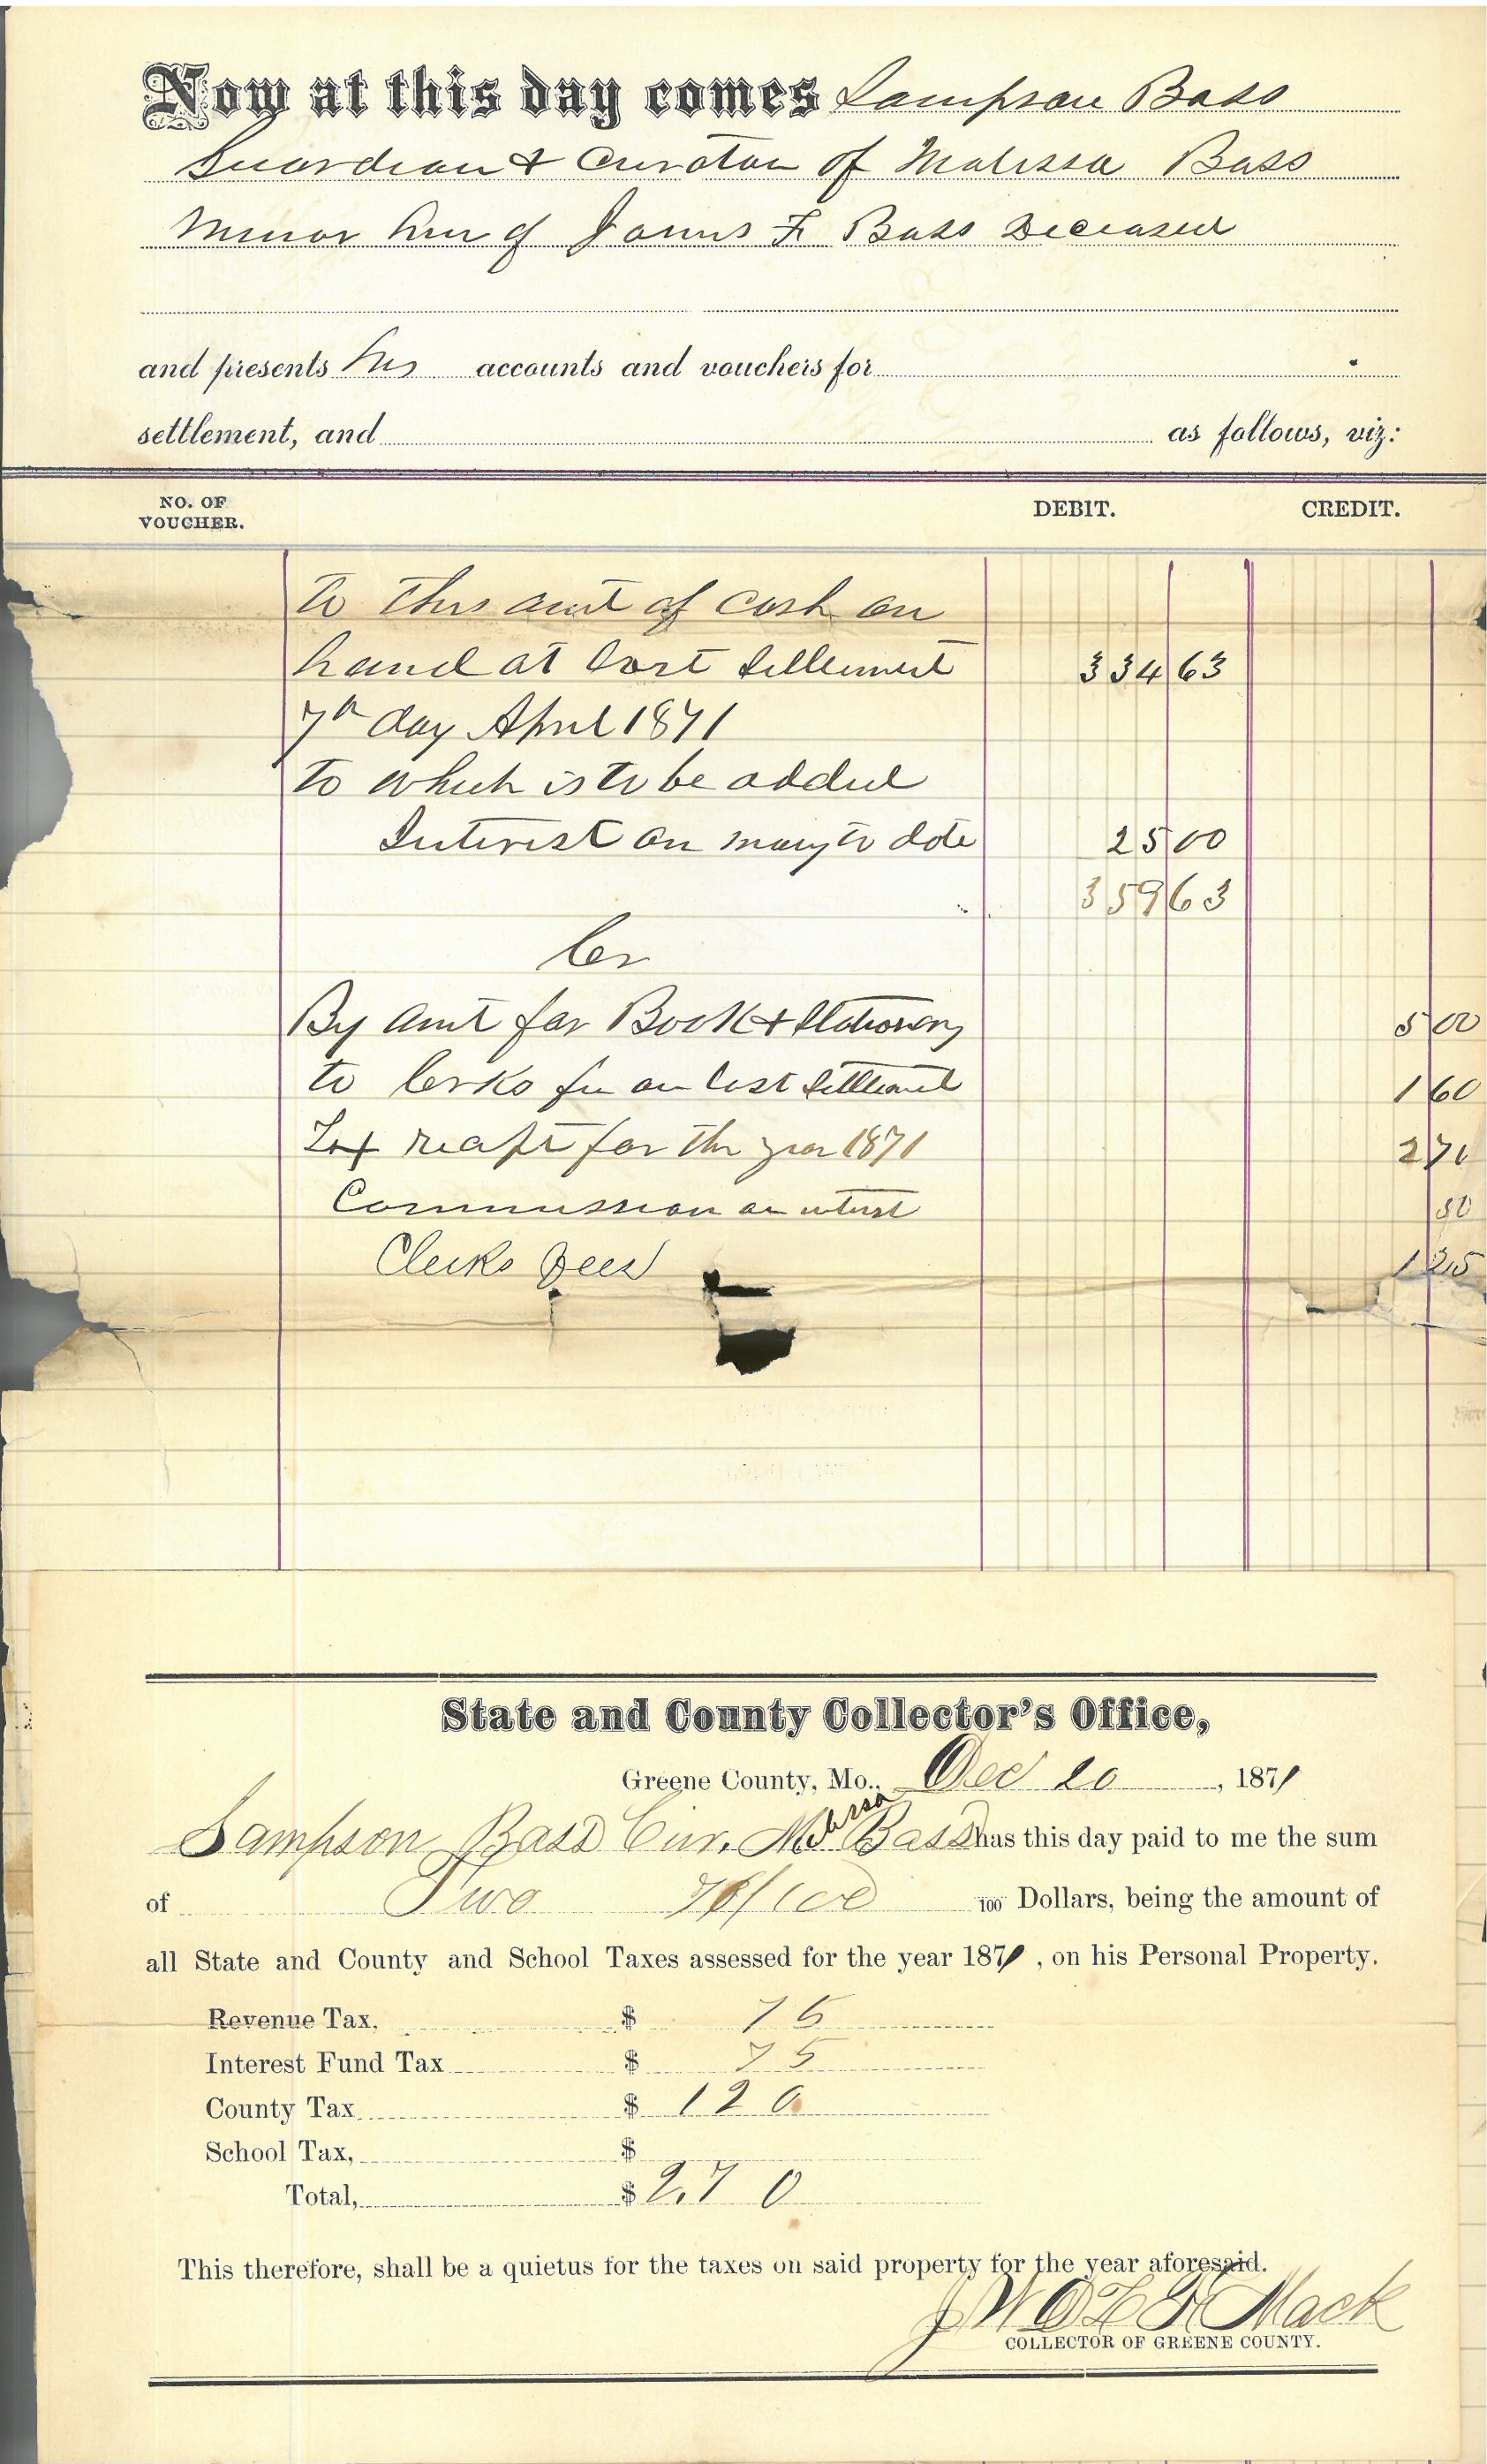 Now at this day comes Sampson Bass
Guardian & Curator of Malissa Bass
minor heir of James F Bass Deceased
and presents his accounts and vouchers for
settlement, and as follows, viz:
NO. OF VOUCHER. DEBIT. CREDIT.
to this amt of cash on
hand at last settlement 334 63
7th day April 1871
to which is to be added
Interest on mony to date 25 00
359 63
Cr
By amt for Book & Stationery 5 00
to Clrks fee on last settlement 1 60
Tax recpt for the year 1871 2 70
Commission on intrst 50
Clerks fees 1 25
State and County Collector's Office,
Greene County, Mo., Dec 20, 1871
Sampson Bass Cur. Malissa Bass has this day paid to me the sum
of Two 70/100 100 Dollars, being the amount of
all State and County and School Taxes assessed for the year 1871, on his Personal Property.
Revenue Tax, $ 75
Interest Fund Tax $ 75
County Tax $ 1 20
School Tax, $
Total, $ 2.70
This therefore, shall be a quietus for the taxes on said property for the year aforesaid.
Mack
COLLECTOR OF GREENE COUNTY.